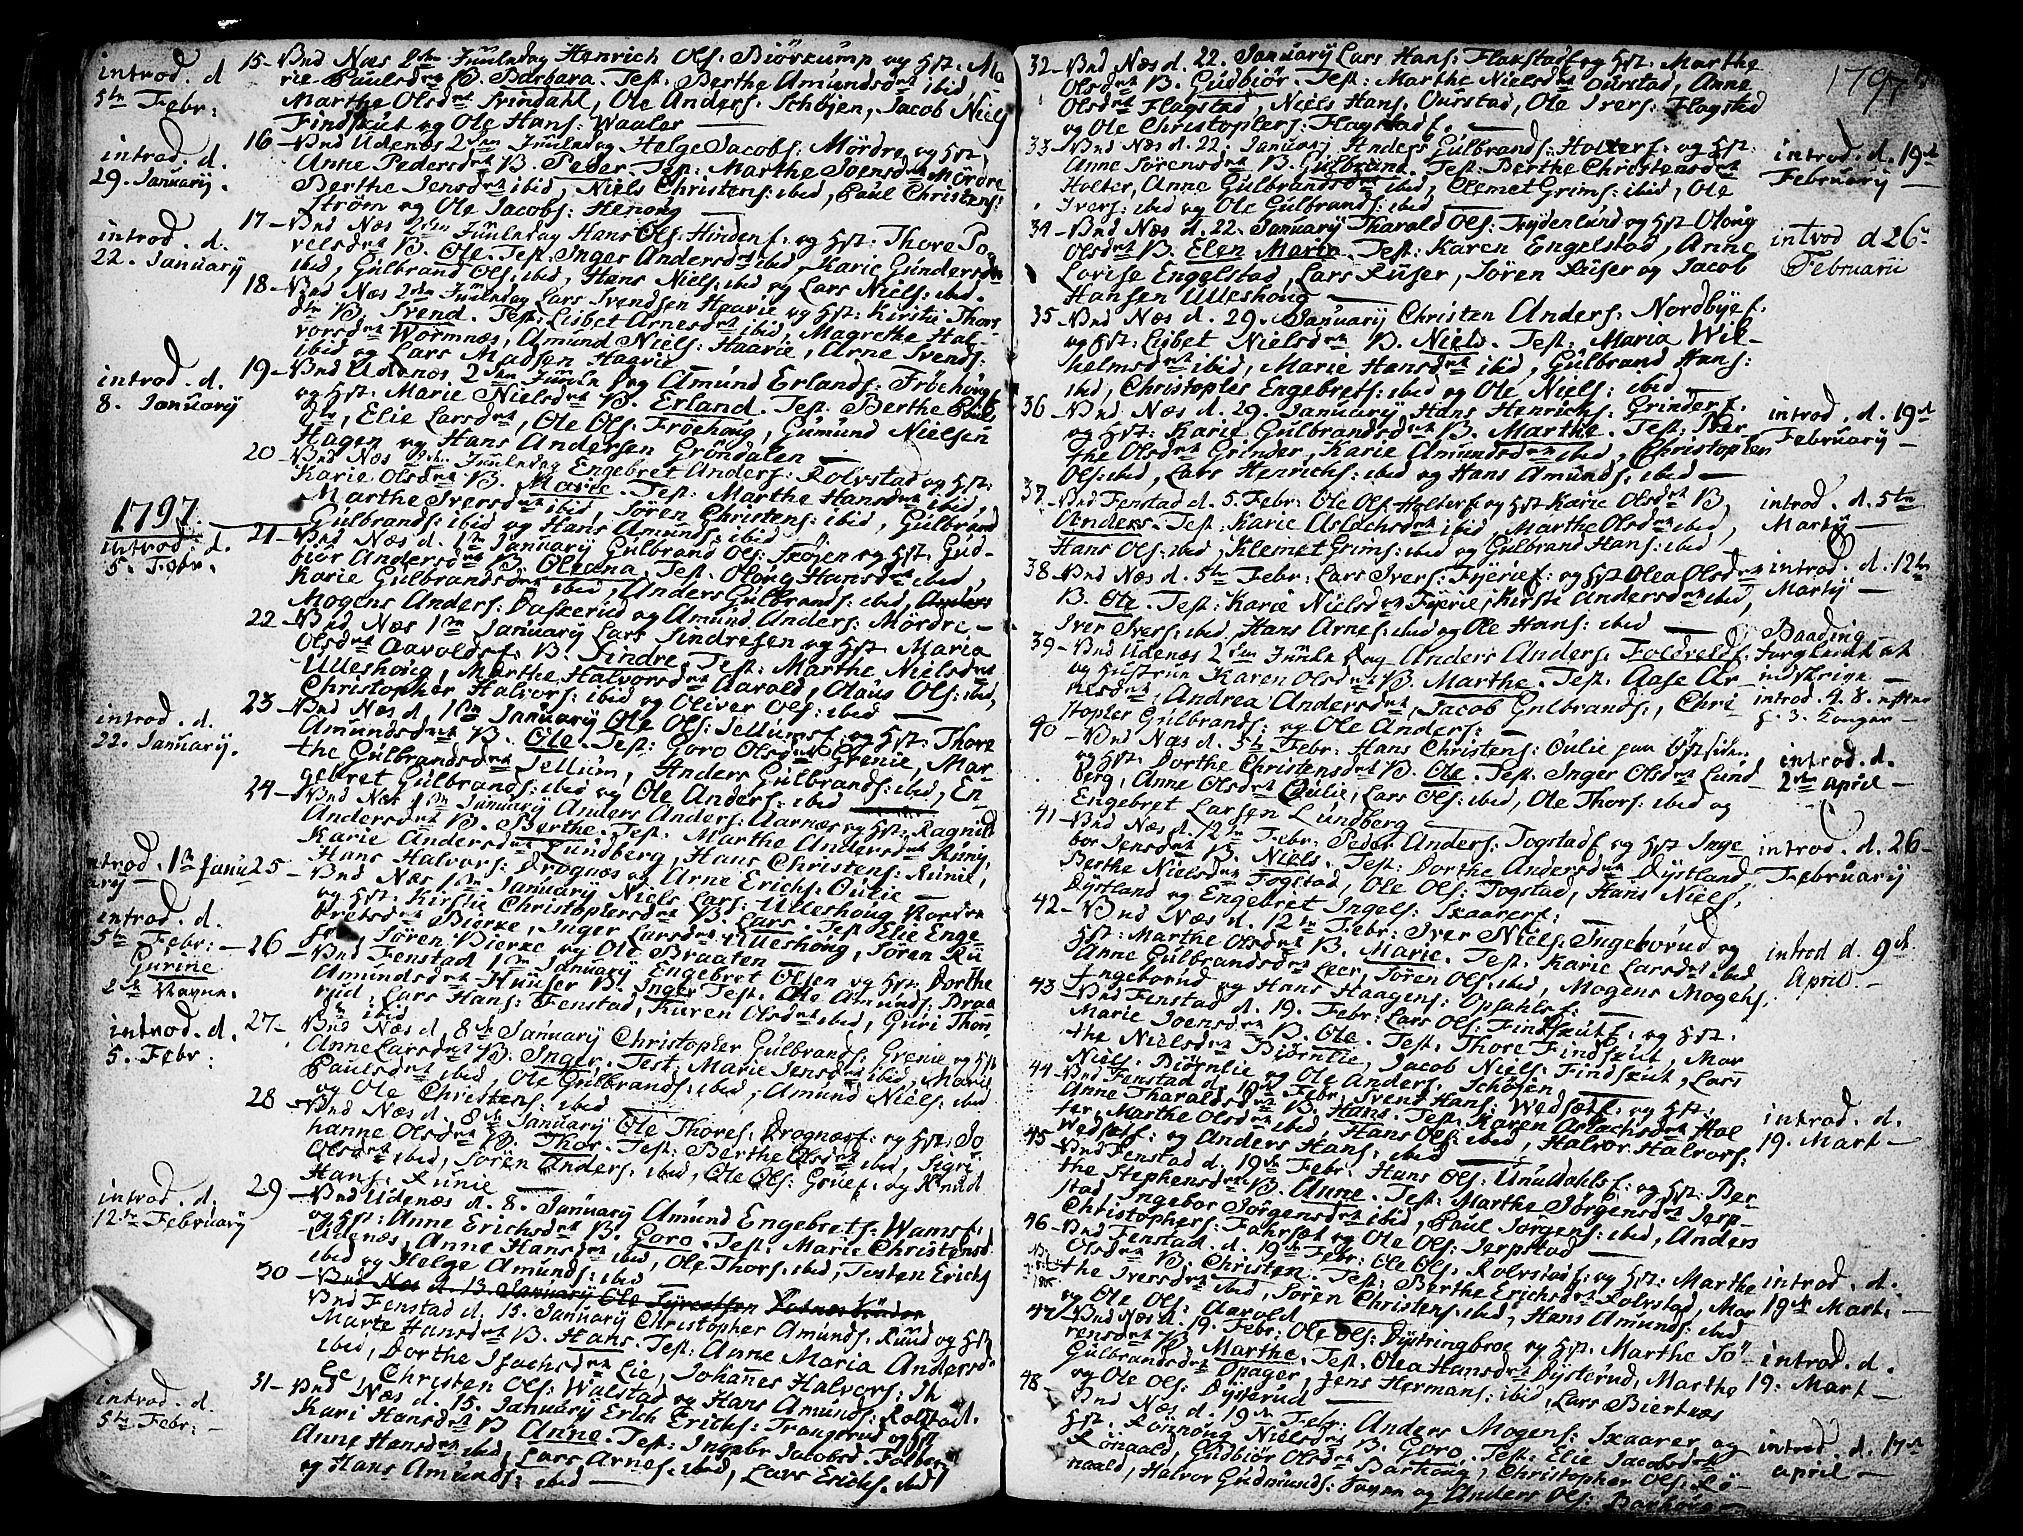 introd. d
5te Febr:
15- Bnd Næs 2den Juuledag Henrich Ols: Biörkump og Hst: Ma
rie Paulsdtr B. Barbara. Test: Berthe Amundsdtr ibid
Marthe Olsdtr Svindahl, Ole Anders: Schøjen, Jacob Niels
Findskut og Ole Hans: Waaler
introd. d.
29. January.
16 - Bnd Udenæs 2den Juuledag Helge Jacobs: Mördre og Hst:
Anne Pedersdtr B. Peder. Test: Marthe Joensdtr Mördre
Berthe Jensdtr ibid, Niels Christens: ibid, Paul Christens:
Ström og Ole Jacobs: Henong
introd. d.
22. January
17- Bnd Næs 2den Juuledag Hans Ols: Hindenf. og Hst: Thore Po
velsdtr B. Ole. Test: Inger Andersdtr ibid, Karie Gundersdtr
ibid, Gulbrand Ols: ibid, Hans Niels: ibid og Lars Niels: ibid.
18- Bnd Næs 2den Juuledag Lars Svendsen Haavie og Hst: Kirsti Thors
dtr B. Svend. Test: Lisbet Arnesdtr ibid, Magrethe Hal-
vorsdtr Wormnæs, Amund Niels: Haavie, Arne Svends:
ibid og Lars Madsen Haavie
introd. d.
8. January
19- Bnd Udenæs 2den Juule Dag Amund Erlands: Fröehoug
og Hst: Marie Nielsdtr B. Erland. Test: Berthe Pouls
dtr, Elie Larsdtr, Ole Ols: Fröehoug, Gumund Nielsen
Hagen og Hans Andersen Gröndalen
20- Bnd Næs 2den Juuledag Engebret Anders: Rolvstad og Hst:
Karie Olsdtr B. Marie. Test: Marthe Hansdtr ibid,
Marthe Iversdtr ibid, Sören Christens: ibid, Gulbrand
Gulbrands: ibid og Hans Amunds: ibid
1797.
introd. d.
5. Febr.
21- Bnd Næs d. 1te January Gulbrand Ols: Skøjen og Hst: Gud-
biör Andersdtr B. Oleana. Test: Oloug Hansdtr ibid,
Karie Gulbrandsdtr ibid, Anders Gulbrands: ibid, Anders
Mogens Anders: Daskerud og Amund Anders: Mördre-
22- Bnd Næs 1te January Lars Sindresen og Hst: Maria
Olsdtr Aarolds: B. Sindre. Test: Marthe Nielsdtr
Ulleshoug, Marthe Halvorsdtr Aarold, Olaus Ols: ibid,
Christopher Halvors: ibid og Oliver Ols: ibid
introd. d.
22. January.
23- Bnd Næs d 1te January Ole Ols: Jellumsf. og Hst: Thore
Amundsdtr B. Ole. Test: Goro Olsdtr Grenie, Mar-
the Gulbrandsdtr Jellum, Anders Gulbrands: ibid, En-
gebret Gulbrands: ibid og Ole Anders: ibid
24- Bnd Næs 1te January Anders Anders: Aarnæs og Hst: Ragnild
Andersdtr B. Berthe. Test: Marthe Andersdtr Runie,
Karie Andersdtr Lundberg, Hans Christens: Runie,
Hans Halvors: Drognæs og Arne Erichs: Oulie-
introd. 1te Janu
ary
25- Bnd Næs 1te January Niels Lars: Ulleshoug Nordre
og Hst: Kirstie Christophersdtr B. Lars. Test: Elie Enge
bretsdtr Bierke, Inger Larsdtr Ulleshoug, Sören
Sören Bierke og Ole Braaten
introd. d.
5te Febr: -
Gurine
26- Bnd Fenstad 1te January Engebret Olsen og Hst: Dorthe
Amundsdtr Huuser B. Inger Test: Ole Amunds: Braa
Lars Hans: Fenstad, Karen Olsdtr ibid, Guri Thor
ibid
introd. d.
5. Febr:
27- Bnd Næs d. 8de January Christopher Gulbrands: Grenie og Hst
Anne Larsdtr B. Inger. Test: Marie Jensdtr ibid, Marie
Paulsdtr ibid, Ole Gulbrands: ibid, Amund Niels: ibid
og Ole Christens: ibid
28 - Bnd Næs d. 8de January Ole Thores: Drognæsf: og Hst: Jo
hanne Olsdtr B. Thor. Test: Berthe Olsdtr ibid, Sigri
Olsdtr ibid, Sören Anders: ibid, Ole Ols: Gruef. og Knud
Hans: Runie
introd. d.
12te February
29 - Bnd Udenæs d. 8. January Amund Engebrets: Wamsf.
og Hst: Anne Erichsdtr B. Goro. Test: Marie Christensd.
Udenæs, Anne Hansdtr ibid, Ole Thors: ibid, Tosten Erichs
ibid og Helge Amunds: ibid
30 - Bnd Næs d. 13. January Ole
Bnd Fenstad d. 15. January Christopher Amunds: Ruud og Hst
Marte Hansdtr B. Hans. Test: Anne Maria Anders:
ibid, Dorthe Isachsdtr Lie, Johannes Halvors:
Lie, Christen Ols: Walstad og Hans Amunds: Rolstad.
introd. d.
5te Febr: -
31- Bnd Næs d. 15. January Erich Erichs: Frangsrud og Hst
Kari Hansdtr B Anne. Test: Ingebr Jacobsd. Folber
Anne Hansdtr ibid, Lars Arnes: ibid, Lars Erichs: ibid
og Hans Amunds: ibid
1797
32- Bnd Næs d. 22. January Lars Hans: Flakstads og Hst: Marthe
Olsdtr B. Gudbiör. Test: Marthe Nielsdtr Ourstad, Anne
Olsdtr Flagstad, Niels Hans: Ourstad, Ole Ivers: Flagstad
og Ole Christophers: Flagstad.
33 - Bnd Næs d. 22. January Anders Gulbrands: Holterf. og Hst:
Anne Sörensdtr B. Gulbrand. Test: Berthe Christensdtr
Holter, Anne Gulbrandsdtr ibid, Clemet Grims: ibid, Ole
Ivers: ibid og Ole Gulbrands: ibid
introd. d. 19de
February
34 - Bnd Næs d. 22. January Tharald Ols: Frydenlund og Hst Oloug
Olsdtr B. Elen Maria. Test: Karen Engelstad, Anne
Lovise Engelstad, Lars Rüser, Sören Rüser og Jacob
Hansen Ulleshoug
introd d 26
Februarii
35 - Bnd Næs d. 29. January Christen Anders: Nordbyef.
og Hst: Lisbet Nielsdtr B. Niels. Test: Maria Wil-
helmsdtr ibid, Marie Hansdtr ibid, Gulbrand Hans:
ibid, Christopher Engebrets: ibid og Ole Niels: ibid
36 - Bnd Næs d. 29. January Hans Henrichs: Grinderf.
og Hst: Karie Gulbrandsdtr B. Marthe. Test: Ber
the Olsdtr Grinder, Karie Amundsdtr ibid, Christopher
Ols: ibid, Lars Henrichs: ibid og Hans Amunds: ibid
introd. d. 19de
February
37. Bnd Fenstad d. 5. Febr: Ole Ols: Holterf og Hst Karie Olsdtr B.
Anders. Test: Karie Aslachsdtr ibid, Marthe Olsdtr ibid,
Hans Ols: ibid, Klemet Grims: ibid og Gulbrand Hans: ibid
introd. d. 5te
Martij
38 - Bnd Næs d. 5te Febr: Lars Ivers: Fyrief: og Hst Olea Olsdtr
B. Ole. Test: Karie Nielsdtr Fyrie, Kirsti Andersdtr ibid,
Iver Ivers: ibid, Hans Arnes: ibid og Ole Hans: ibid
introd. d. 12te
Martij
39 - Bnd Udenæs 2den Juule Dag Anders Anders: Foldvelds:
og Hustrue Karen Olsdtr B. Marthe. Test: Aase Ar-
nesdtr, Andrea Andersdtr, Jacob Gulbrands:, Chri-
stopher Gulbrands: og Ole Anders:
Baading
forglemt at
indskrive
introd. d. 8. efter
H. 3. Konger
40 - Bnd Næs d. 5te Febr: Hans Christens: Oulie paa Östsiden
og Hst: Dorthe Christensdtr B. Ole. Test: Inger Olsdtr Lund
berg, Anne Olsdtr Oulie, Lars Ols: ibid, Ole Thors: ibid og
Engebret Larsen Lundberg
introd. d.
2den april
41 - Bnd Næs d. 12te Febr: Peder Anders: Togstads og Hst Inge
bor Jensdtr B. Niels. Test: Dorthe Andersdtr Dystland,
Berthe Nielsdtr Togstad, Ole Ols: Togstad, Hans Niels.
Dystland og Engebret Ingels: Skaarerf:
introd. d. 26-
February
42 - Bnd Næs d. 12te Febr: Iver Niels: Ingeborud og
Hst: Marthe Olsdtr B. Marie. Test: Karie Larsdtr ibid,
Anne Gulbrandsdtr Leer, Sören Ols: ibid, Mogens Mogens
Ingeborud og Hans Haagens: Opsahlsf:
introd d. 9de
April.
43 - Bnd Fenstad d. 19. Febr: Lars Ols: Findskutf: og Hst.
Marie Joensdtr B. Ole. Test: Thore Findskut, Mar
the Nielsdtr Biörnlie, Jacob Niels: Findskut, Lars
Niels: Biörnlie og Ole Anders: Schöjen
44 - Bnd Fenstad d. 19de Febr: Svend Hans: Wedsætf: og Hst.
Anne Tharaldsdtr B. Hans. Test: Karen Aslachsdtr Hol
ter, Marthe Olsdtr ibid, Hans Ols: ibid, Halvor Halvors:
Wedsætf: og Anders Hans: ibid
introd. d.
19. Mart-
45 - Bnd Fenstad d. 19de Febr: Hans Ols: Unudahlsf: og Hst: Ber
the Stephensdtr B. Anne. Test: Marthe Jörgensdtr Jerp-
stad, Ingebor Jörgensdtr ibid, Paul Jörgens: ibid, Anders
Christophers: Fahrsæt og Ole Ols: Jerpstad
46 - Bnd Fenstad. d. 19de Febr: Ole Ols: Rolvstadf: og Hst: Marthe
Olsdtr B. Christen. Test: Berthe Erichsdtr Rolvstad, Mar
the Iversdtr ibid, Sören Christens: ibid, Hans Amunds: ibid
og Ole Ols: Aarold
introd. d.
19de Mart.
47 - Bnd Næs d. 19. Febr: Ole Ols: Dystringbroe og Hst: Marthe Sö-
rensdtr B. Marthe. Test: Olea Hansdtr Dysterud, Marthe
Gulbrandsdtr Opager, Jens Hermans: ibid, Lars Biertnæs
og Ole Ols: Dysterud
introd. d.
19: Mart
48 - Bnd Næs d. 19de Febr: Anders Mogens: Skaarer, og
Hst. Rönnoug Nielsdtr B. Goro. Test: Elie Jacobsdtr
Rönaald, Gudbiör Olsdtr Barhoug, Christopher Ols: Rö-
naald, Halvor Gudmunds: Fonn og Anders Ols: Barhoug
introd. d. 17de
april